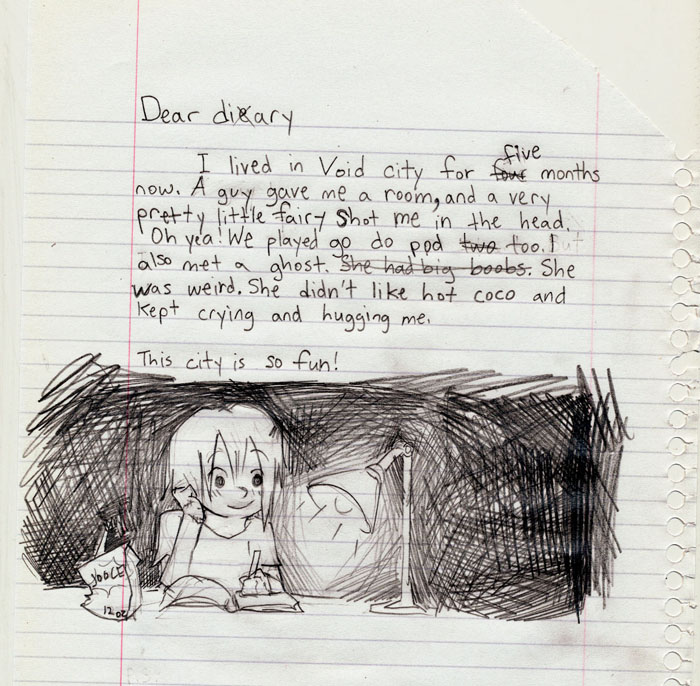 Dear diary
five
I lived in Void city for four months
now. A guy gave me a room, and a very
pretty little fairy shot me in the head.
Oh yea! We played go do ppd two too. I
also met a ghost. She had big boobs. She
was weird. She didn't like hot coco and
kept crying and hugging me.
This city is so fun!
JOOCE
12 oz